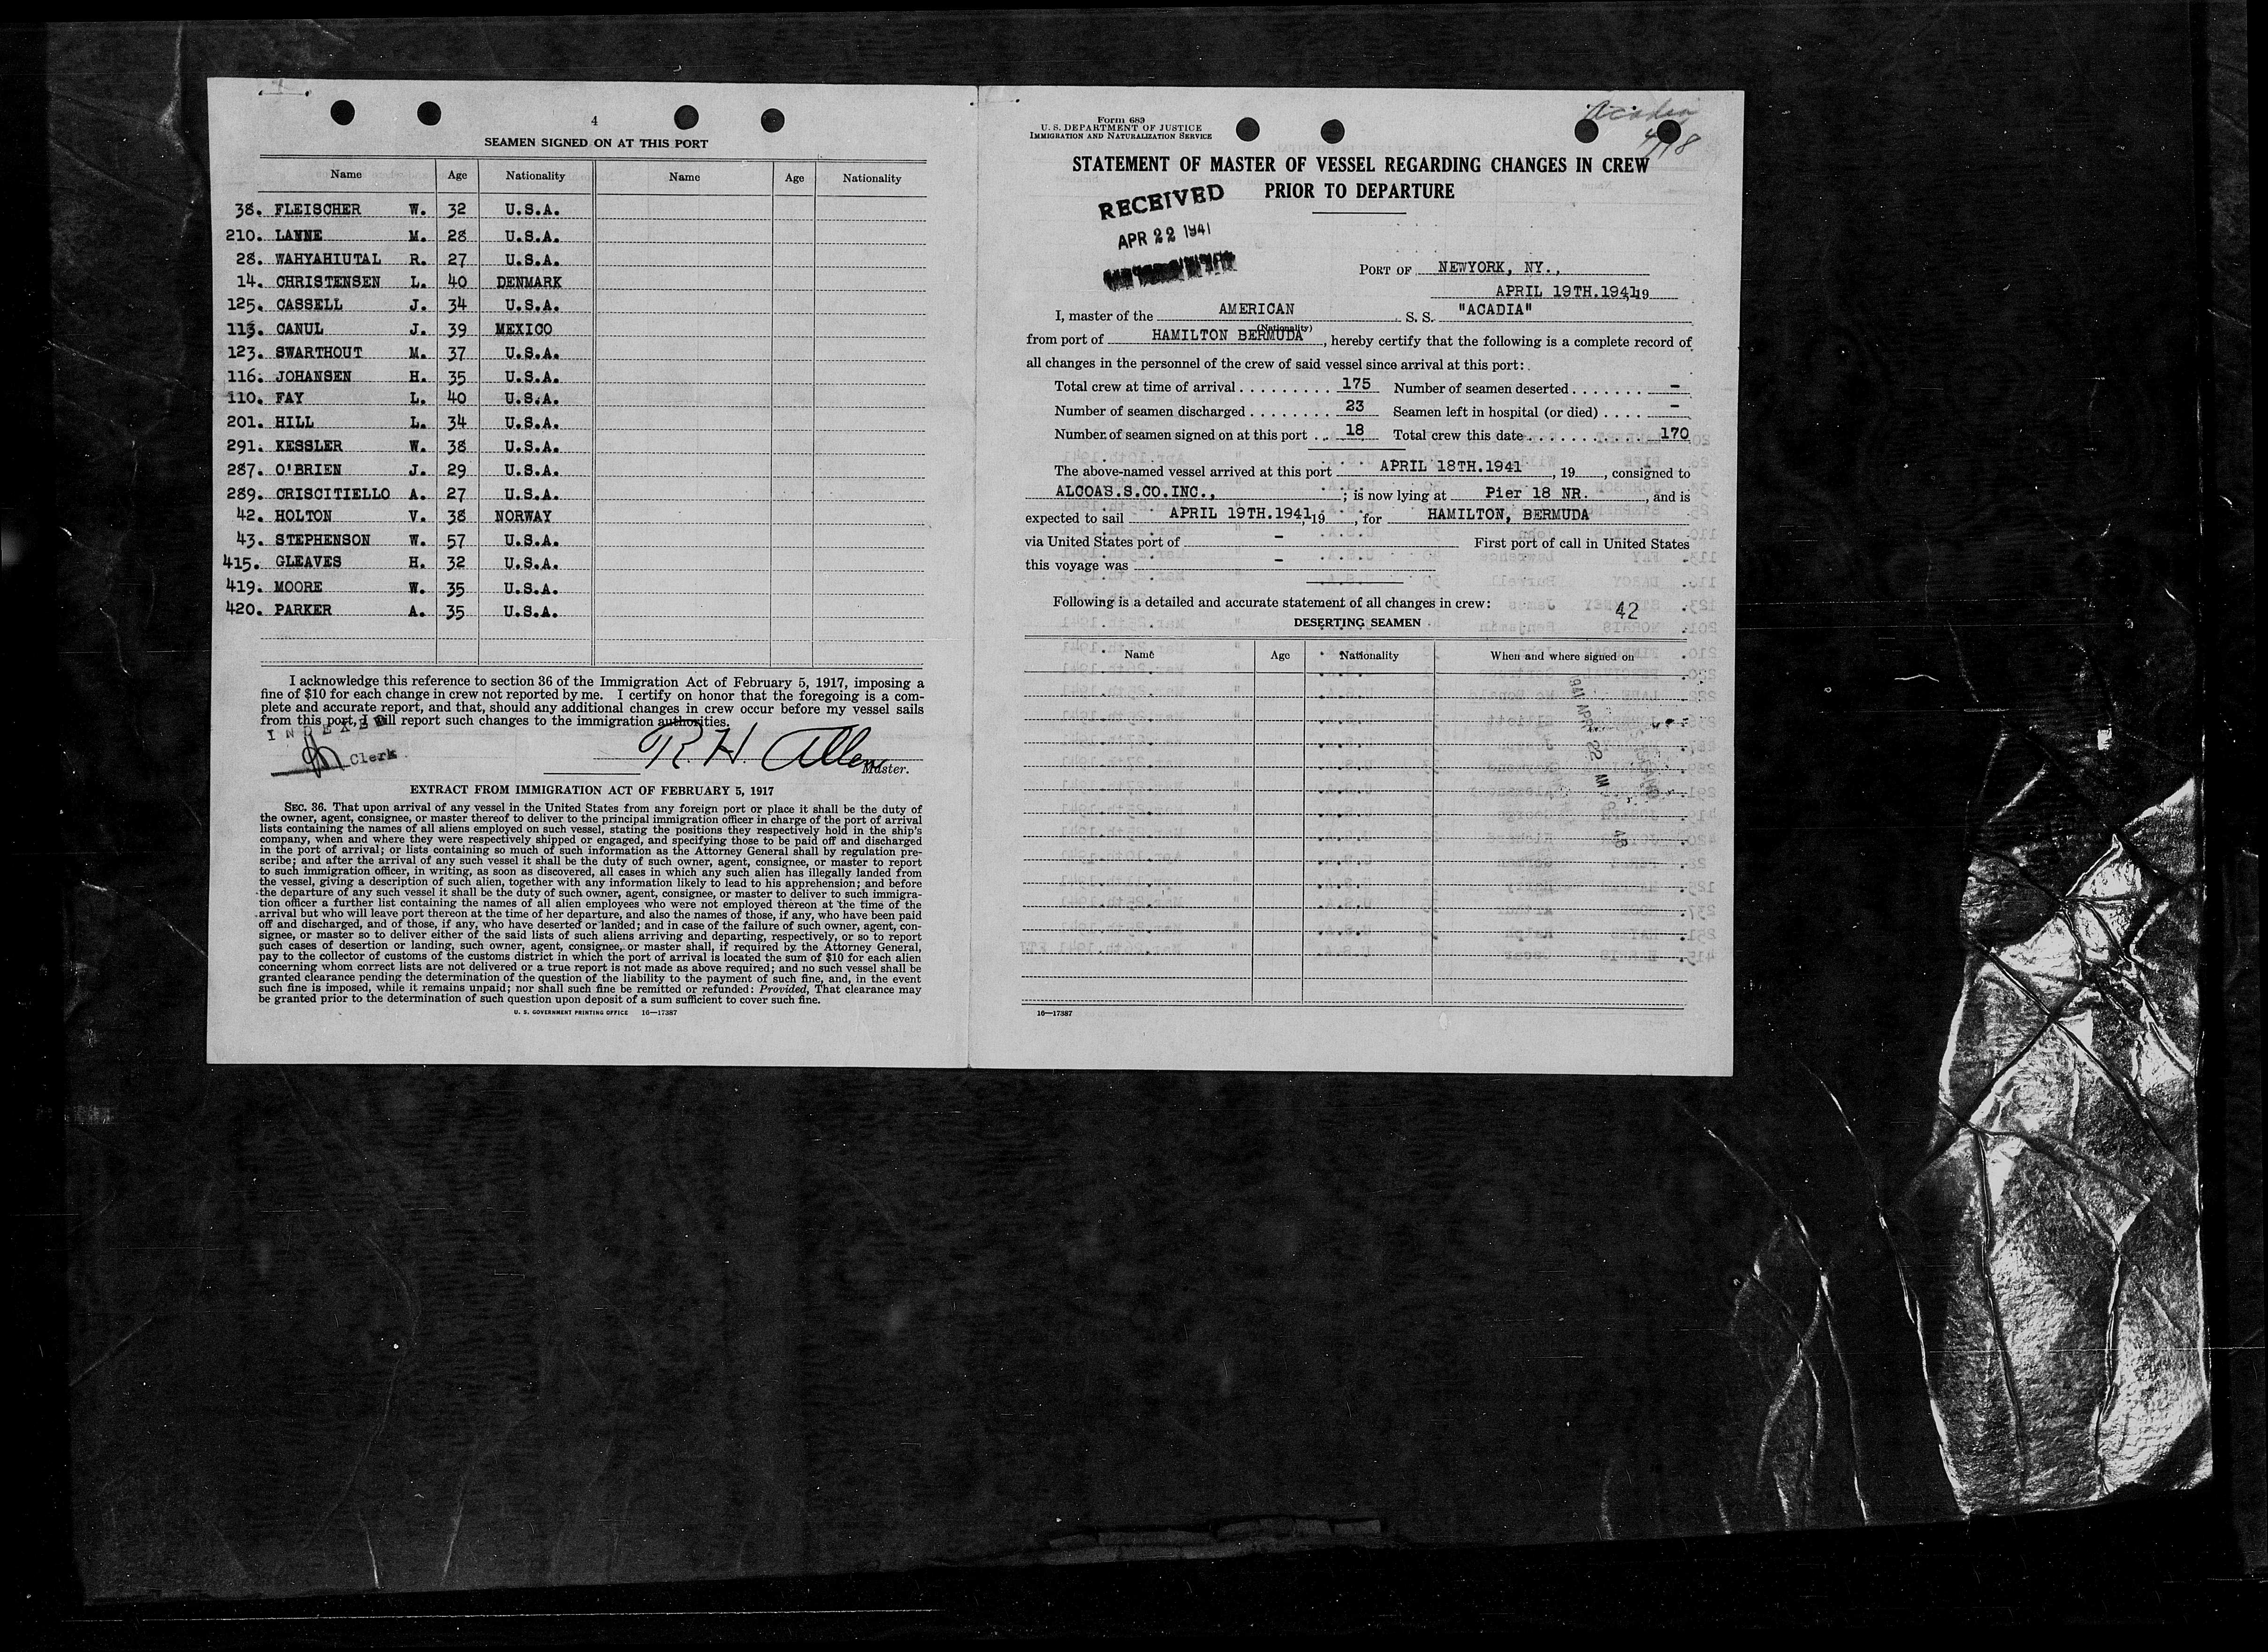 4
SEAMEN SIGNED ON AT THIS PORT
Name Age Nationality Name Age Nationality
38. FLEISCHER W. 32 U.S.A.
210. LANNE M. 28 U.S.A.
28. WAHYAHIUTAL R. 27 U.S.A.
14. CHRISTENSEN L. 40 DENMARK
125. CASSELL J. 34 U.S.A.
113. CANUL J. 39 MEXICO
123. SWARTHOUT M. 37 U.S.A.
116. JOHANSEN H. 35 U.S.A.
110. FAY L. 40 U.S.A.
201. HILL L. 34 U.S.A.
291. KESSLER W. 38 U.S.A.
287. O'BRIEN J. 29 U.S.A.
289. CRISCITIELLO A. 27 U.S.A.
42. HOLTON V. 38 NORWAY
43. STEPHENSON W. 57 U.S.A.
415. GLEAVES H. 32 U.S.A.
419. MOORE W. 35 U.S.A.
420. PARKER A. 35 U.S.A.
I acknowledge this reference to section 36 of the Immigration Act of February 5, 1917, imposing a
fine of $10 for each change in crew not reported by me. I certify on honor that the foregoing is a com-
plete and accurate report, and that, should any additional changes in crew occur before my vessel sails
from this port, I will report such changes to the immigration authorities.
INDEXED
Clerk
R. H. Allen
Master.
EXTRACT FROM IMMIGRATION ACT OF FEBRUARY 5, 1917
SEC. 36. That upon arrival of any vessel in the United States from any foreign port or place it shall be the duty of
the owner, agent, consignee, or master thereof to deliver to the principal immigration officer in charge of the port of arrival
lists containing the names of all aliens employed on such vessel, stating the positions they respectively hold in the ship's
company, when and where they were respectively shipped or engaged, and specifying those to be paid off and discharged
in the port of arrival; or lists containing so much of such information as the Attorney General shall by regulation pre-
scribe; and after the arrival of any such vessel it shall be the duty of such owner, agent, consignee, or master to report
to such immigration officer, in writing, as soon as discovered, all cases in which any such alien has illegally landed from
the vessel, giving a description of such alien, together with any information likely to lead to his apprehension; and before
the departure of any such vessel it shall be the duty of such owner, agent, consignee, or master to deliver to such immigra-
tion officer a further list containing the names of all alien employees who were not employed thereon at the time of the
arrival but who will leave port thereon at the time of her departure, and also the names of those, if any, who have been paid
off and discharged, and of those, if any, who have deserted or landed; and in case of the failure of such owner, agent, con-
signee, or master so to deliver either of the said lists of such aliens arriving and departing, respectively, or so to report
such cases of desertion or landing, such owner, agent, consignee, or master shall, if required by the Attorney General,
pay to the collector of customs of the customs district in which the port of arrival is located the sum of $10 for each alien
concerning whom correct lists are not delivered or a true report is not made as above required; and no such vessel shall be
granted clearance pending the determination of the question of the liability to the payment of such fine, and, in the event
such fine is imposed, while it remains unpaid; nor shall such fine be remitted or refunded: Provided, That clearance may
be granted prior to the determination of such question upon deposit of a sum sufficient to cover such fine.
U. S. GOVERNMENT PRINTING OFFICE 16—17387
Acadia
4/18
Form 689
U. S. DEPARTMENT OF JUSTICE
IMMIGRATION AND NATURALIZATION SERVICE
STATEMENT OF MASTER OF VESSEL REGARDING CHANGES IN CREW
PRIOR TO DEPARTURE
RECEIVED
APR 22 1941
PORT OF NEWYORK, NY.,
APRIL 19TH.1941, 19
I, master of the AMERICAN S. S. "ACADIA"
(Nationality)
from port of HAMILTON BERMUDA, hereby certify that the following is a complete record of
all changes in the personnel of the crew of said vessel since arrival at this port:
Total crew at time of arrival 175 Number of seamen deserted -
Number of seamen discharged 23 Seamen left in hospital (or died) -
Number of seamen signed on at this port 18 Total crew this date 170
The above-named vessel arrived at this port APRIL 18TH.1941, 19, consigned to
ALCOAS.S.CO.INC., ; is now lying at Pier 18 NR. , and is
expected to sail APRIL 19TH.1941, 19, for HAMILTON, BERMUDA
via United States port of - First port of call in United States
this voyage was -
Following is a detailed and accurate statement of all changes in crew:
42
DESERTING SEAMEN
Name Age Nationality When and where signed on
1941 APR 22 AM 9 48
16—17387